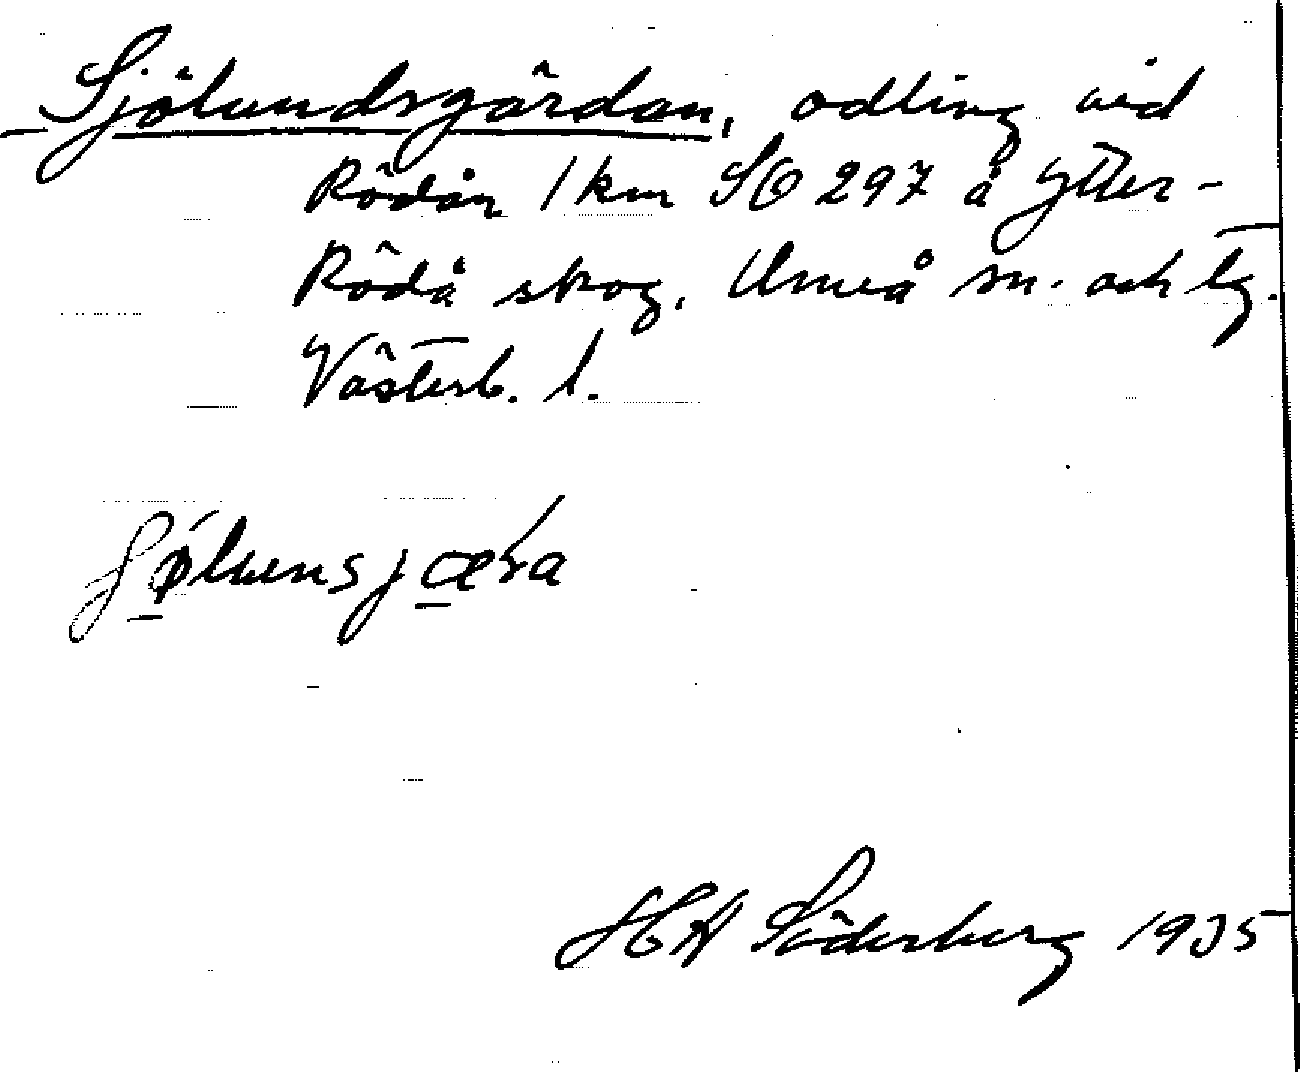 Sjölundsgärdan, odling vid
Rödån 1 km SO 297 å Ytter-
Rödå skog, Umeå sn. och tg.
Västerb. l.
HA Söderberg 1935